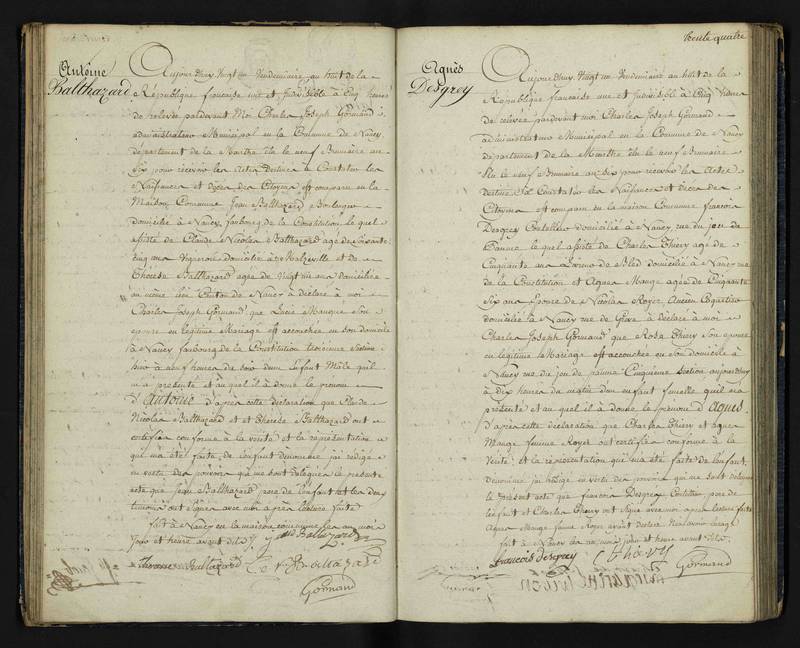 Antoine
Balthazard
Aujourdhuy Vingt un Vendemiaire an huit de la
République francaise une et Indivisible à Cinq heures
de relevée pardevant Moi Charles Joseph Gormand
administrateur Municipal en la Commune de Nancy
département de la Meurthe élu le neuf Brumaire an
Six pour recevoir les actes destinés à Constater les
Naissances et décès des Citoyens est comparu en la
Maison Commune Jean Balthazard Boulanger
domicilié à Nancy faubourg de la Constitution lequel
assisté de Claude Nicolas Balthazard agé de soixante
cinq ans Vigneron domicilié à Malzeville et de
Thérese Balthazard agée de vingt un ans domiciliée
au même lieu Canton de Nancy a déclaré à moi
Charles Joseph Gormand que Lucie Mangue son
épouse en légitime Mariage est accouchée en son domicile
à Nancy faubourg de la Constitution troisieme Section
hier à neuf heures du soir d'un Enfant Male qu'il
m'a présenté et auquel il à donné le prénom
d'Antoine d'après cette déclaration que Claude
Nicolas Balthazard et Thérese Balthazard ont
certifiée conforme à la vérité et la représentation
qui m'a été faite de l'enfant dénommé j'ai rédigé
en vertu des pouvoirs qui me sont délégués le présent
acte que Jean Balthazard pere de l'enfant et les deux
témoins ont signé avec moi après lecture faite
fait à Nancy en la maison commune les an mois
jour et heure avant dits
Balthazard
Therese Balthazard C N Baltazard
Gormand
trente quatre
Agnès
Desgrey
Aujourdhuy Vingt un Vendemiaire an huit de la
République francaise une et Indivisible à Cinq heures
de relevée pardevant moi Charles Joseph Gormand
administrateur Municipal en la Commune de Nancy
département de la Meurthe élu le neuf Brumaire
élu le neuf Brumaire an six pour recevoir les Actes
destinés à Constater les Naissances et décès des
Citoyens est comparu en la maison Commune françois
Desgrey Coutellier domicilié à Nancy rue du jeu de
Paume lequel assisté de Charles Thiery agé de
Cinquante ans domicilié à Nancy rue
de la Constitution et Agnes Mange agée de Cinquante
Six ans Epouse de Nicolas Royer Ancien
domiciliée à Nancy rue de Grève à déclaré à moi
Charles Joseph Gormand que Rose Thiery son epouse
en légitime Mariage est accouchée en son domicile à
Nancy rue du jeu de paume Cinquième section aujourdhuy
à dix heures du matin d'un enfant femelle qu'il m'a
présenté et auquel il à donné le prénom d'Agnès.
D'après cette déclaration que Charles Thiery et Agnes
Mange femme Royer ont certifiée conforme à la
Vérité, et la représentation qui m'a été faite de l'enfant
dénommé j'ai rédigé en vertu des pouvoirs qui me sont délégués
le présent acte que francois Desgrey Coutellier pere de
l'enfant et Charles Thiery ont signé avec moi après lecture faite
Agnes Mange femme Royer ayant déclaré
fait à Nancy les an mois jour et heure avant dits
francois desgrey C Thiery
Gormand